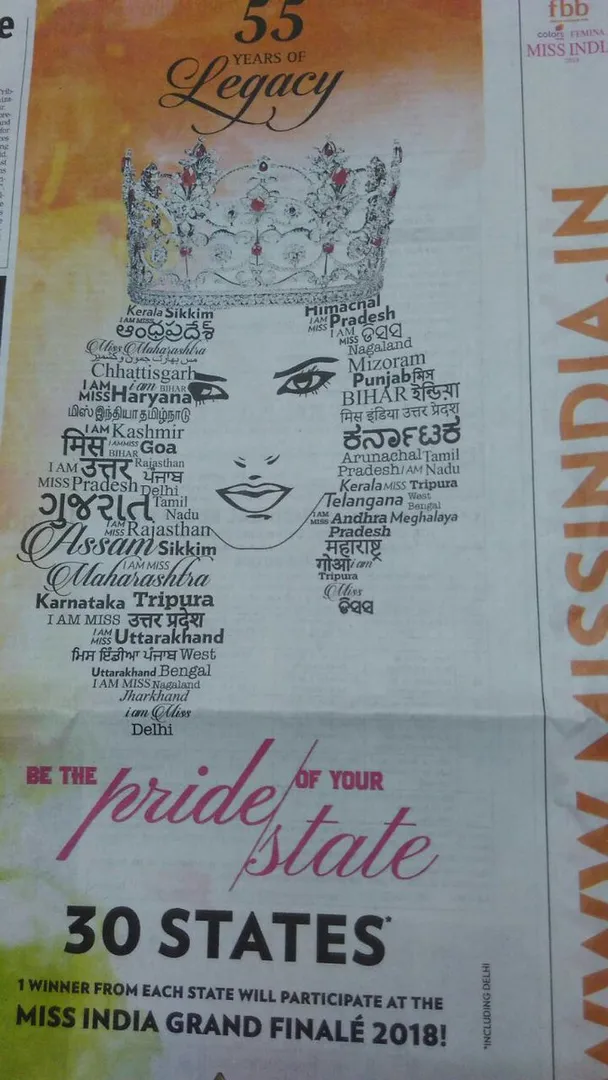 55
YEARS OF
Legacy
Kerala Sikkim
I AM MISS
ఆంధ్రప్రదేశ్
Miss Maharashtra
Chhattisgarh
I AM i am BIHAR
MISS Haryana
மிஸ் இந்தியா தமிழ்நாடு
I AM Kashmir
मिस I AM MISS BIHAR Goa
I AM उत्तर Rajasthan
MISS Pradesh ਪੰਜਾਬ
Delhi
ગુજરાત Tamil
Nadu
I AM MISS Rajasthan
Assam Sikkim
I AM MISS
Maharashtra
Karnataka Tripura
I AM MISS उत्तर प्रदेश
I AM MISS Uttarakhand
ਮਿਸ ਇੰਡੀਆ ਪੰਜਾਬ West
Uttarakhand Bengal
I AM MISS Nagaland
Jharkhand
i am Miss
Delhi
Himachal
I AM MISS Pradesh
I AM MISS
Nagaland
Mizoram
Punjab मिस
BIHAR इन्डिया
मिस इंडिया उत्तर प्रदेश
ಕರ್ನಾಟಕ
Arunachal Tamil
Pradesh I AM Nadu
Kerala MISS Tripura
Telangana West Bengal
I AM MISS Andhra Meghalaya
Pradesh
महाराष्ट्र
गोआ i am
Tripura
Miss
BE THE pride OF YOUR
state
30 STATES*
1 WINNER FROM EACH STATE WILL PARTICIPATE AT THE
MISS INDIA GRAND FINALÉ 2018!
*INCLUDING DELHI
fbb
colors FEMINA
MISS INDIA
2018
WWW.MISSINDIA.IN